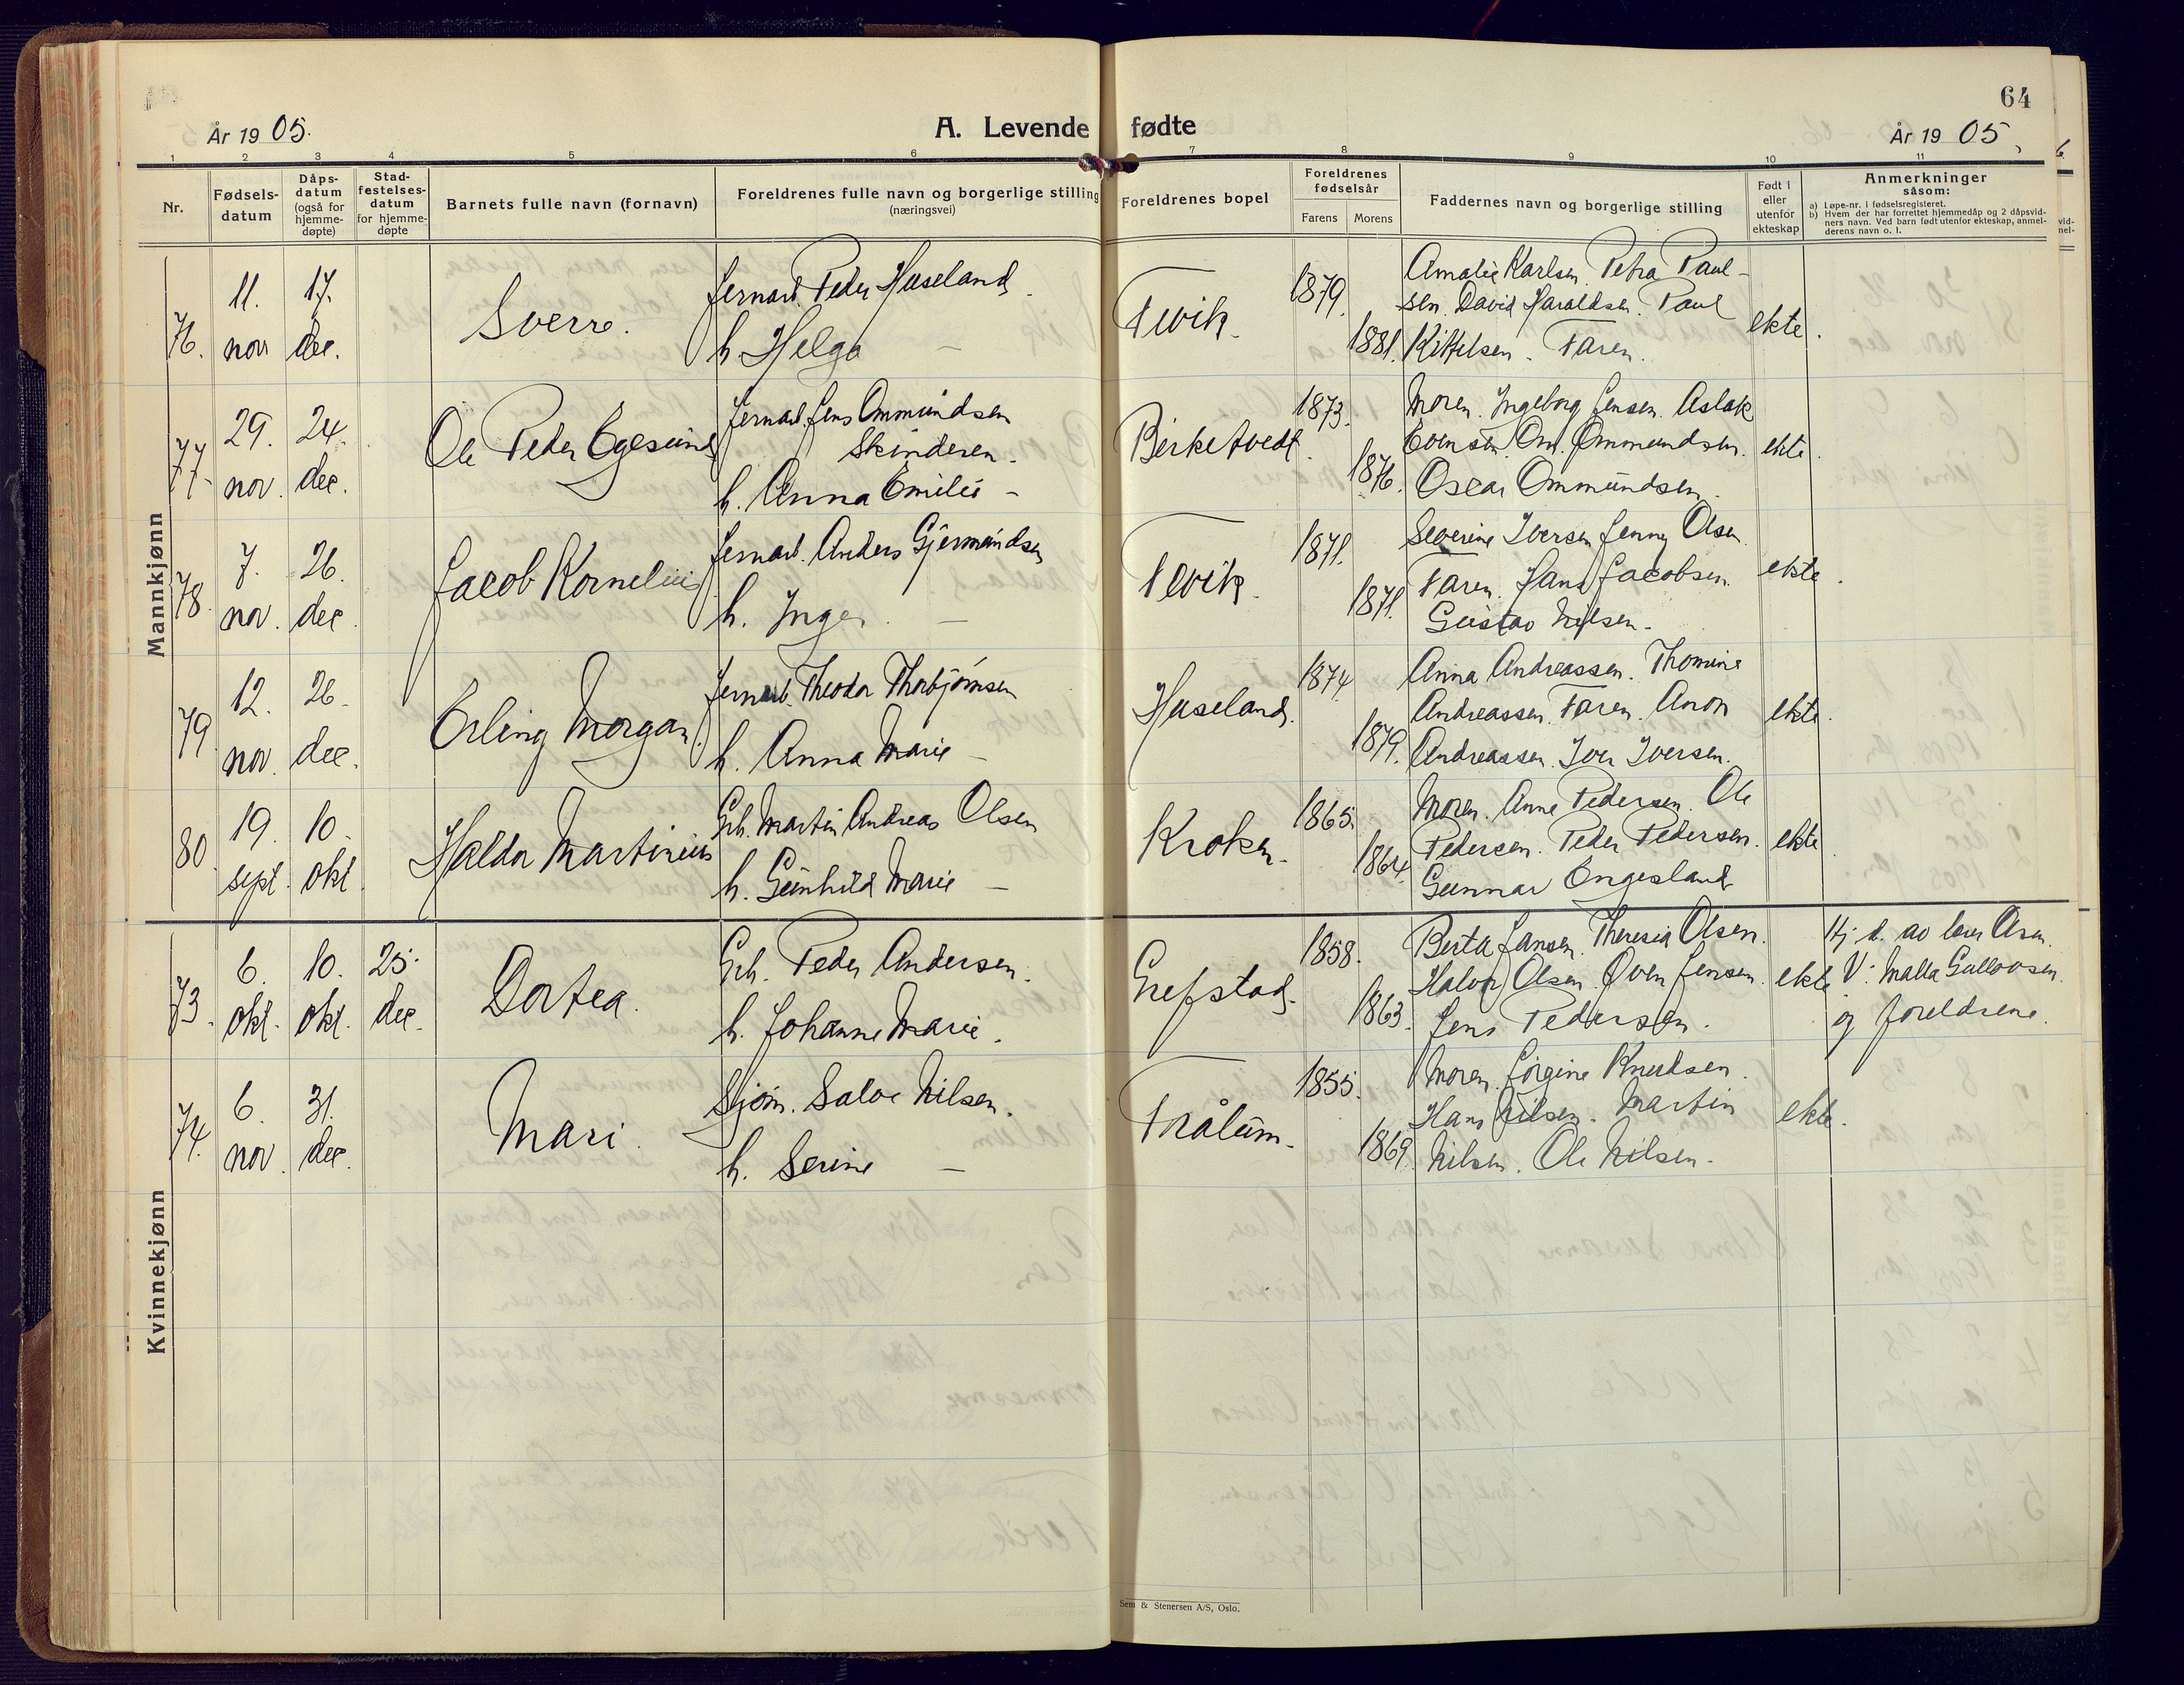 64
År 1905.
A. Levende fødte
År 1905
1 2 3 4 5 6 7 8 9 10 11
Nr.
Fødsels-
datum
Dåps-
datum
(også for
hjemme-
døpte)
Stad-
festelses-
datum
for hjemme-
døpte
Barnets fulle navn (fornavn)
Foreldrenes fulle navn og borgerlige stilling
(næringsvei)
Foreldrenes bopel
Foreldrenes
fødselsår
Farens Morens
Faddernes navn og borgerlige stilling
Født i
eller
utenfor
ekteskap
Anmerkninger
såsom:
a) Løpe-nr. i fødselsregisteret.
b) Hvem der har forrettet hjemmedåp og 2 dåpsvid-
ners navn. Ved barn født utenfor ekteskap, anmel-
derens navn o. l.
Mannkjønn
76.
11.
nov
17.
dec.
Sverre.
Jernarb. Peder Haseland.
h. Helga —
Fevik.
1879.
1881.
Amalie Karlsen. Petra Paul-
sen. David Haraldsen. Paul
Kittelsen. Faren.
ekte.
77.
29.
nov.
24.
dec.
Ole Peder Egesund
Jernarb. Jens Ommundsen
Skinderen.
h. Anna Emilie —
Birketvedt.
1873.
1876.
Moren. Ingeborg Jensen. Aslak
Evensen. Om. Ommundsen.
Oscar Ommundsen.
ekte
78.
7.
nov.
26.
dec.
Jacob Kornelius
Jernarb. Anders Gjermundsen
h. Inger. —
Fevik.
1871.
1871.
Severine Iversen Jenny Olsen.
Faren. Hans Jacobsen.
Gustav Nilsen.
ekte.
79.
12.
nov.
26.
dec.
Erling Morgan.
Jernarb. Theodor Thorbjørnsen
h. Anna Marie —
Haseland.
1874
1879.
Anna Andreassen. Thomine
Andreassen. Faren. Aron
Andreassen. Iver Iversen.
ekte.
80.
19.
sept.
10.
okt.
Haldor Martinius
Grb. Martin Andreas Olsen
h. Gunhild Marie —
Kroken.
1865.
1864.
Moren. Anne Pedersen. Ole
Pedersen. Peder Pedersen.
Gunnar Engesland
ekte.
Kvinnekjønn
73.
6.
okt.
10.
okt.
25.
dec.
Dortea.
Grb. Peder Andersen.
h. Johanne Marie.
Grefstad.
1858.
1863.
Berta Jansen. Theresia Olsen.
Halvor Olsen. Oven Jensen.
Jens Pedersen.
ekte
Hj. d. av lærer Olsen.
V: Malla Gullovsen
og foreldrene.
74.
6.
nov.
31.
dec.
Mari.
Sjøm. Salve Nilsen.
h. Serine —
Trålum.
1855.
1869.
Moren. Jørgine Knudsen.
Hans Nilsen. Martin
Nilsen. Ole Nilsen.
ekte.
Sem & Stenersen A/S, Oslo.